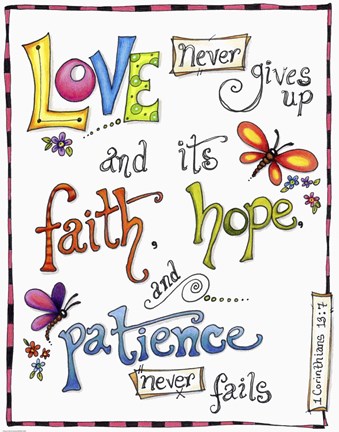 LOVE never
gives
up
and its
faith, hope,
and
patience
never fails
1 Corinthians 13:7